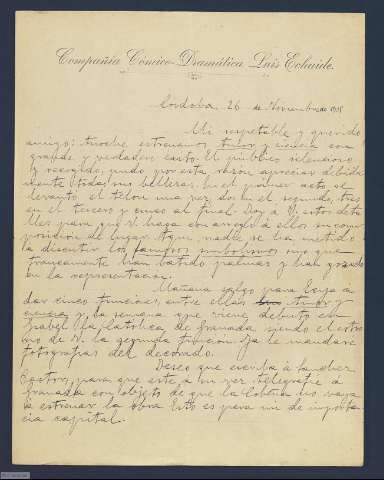 Compañía Cómico-Dramática Luis Echaide.
Córdoba 26 de Noviembre de
Mi respetable y querido
amigo: Anoche estrenamos Amor y ciencia con
grande y verdadero exito. El publico silencioso
y recogido, pudo por esta razon apreciar debida
mente todas sus bellezas. En el primer acto se
levantó el telon una vez, dos en el segundo, tres
en el tercero y cinco al final. Doy á V. estos deta
lles para que V. haga con arreglo á ellos su com
posicion de lugar. Aqui, nadie se ha metido
a discutir los famosos simbolismos sino que
francamente han batido palmas y han gozado
en la representacion.
Mañana salgo para Loja á
dar cinco funciones, entre ellas Amor y
ciencia y la semana que viene, debuto en
Isabel la Católica de Granada siendo el estre
no de V. la segunda funcion. Ya le mandaré
fotografias del decorado.
Deseo que escriba á Sanchez
Castro, para que este á su vez telegrafie á
Granada con objeto de que la Cobeña no vaya
á estrenar la obra. Esto es para mi de importan
cia capital.